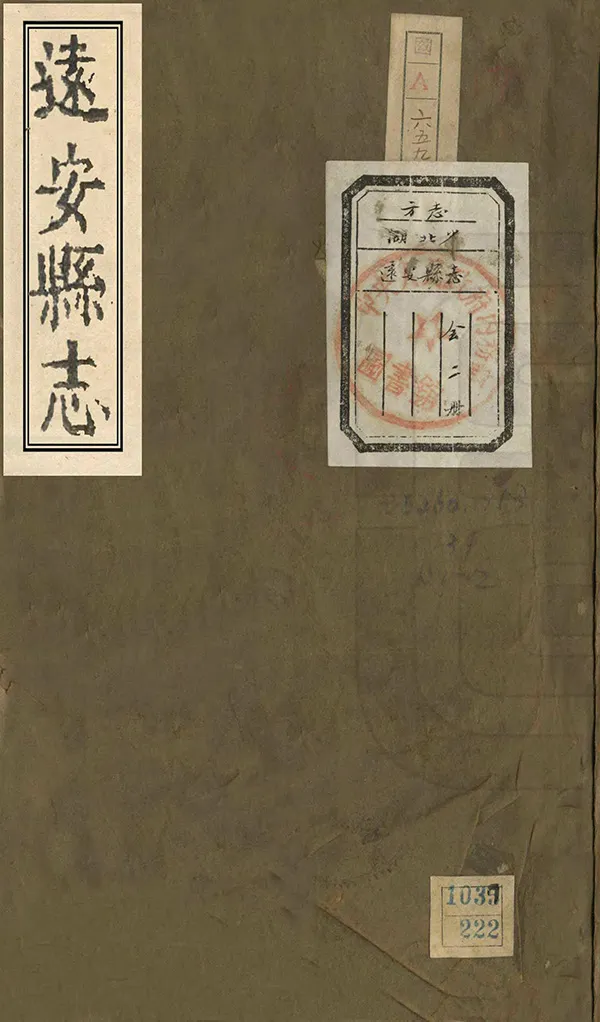 遠安縣志
國
A
六五九
志方
省北湖
志縣安遠
全二册
圖書
1039
222